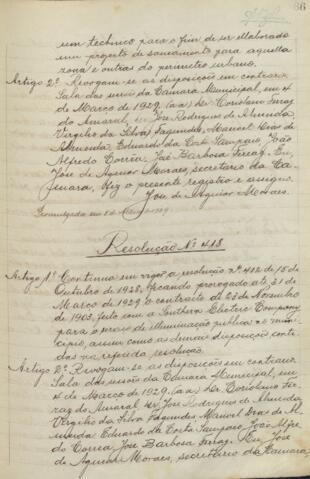 86
um technico para o fim de ser elaborado
um projecto de saneamento para aquella
zona e outras do perimetro urbano.
Artigo 2º Revogam-se as disposições em contrario.
Sala das sessões da Camara Municipal, em 4
de Março de 1929. (aa) Dr. Coriolano Ferraz
do Amaral, Dr. José Rodrigues de Almeida,
Virgilio da Silva Fagundes, Manoel Dias de
Almeida, Eduardo da Costa Sampaio, João
Alfredo Corrêa, José Barbosa Ferraz. Eu,
José de Aguiar Moraes, secretario da Ca-
mara, fiz o presente registro e assigno.
José de Aguiar Moraes.
Promulgada em
Resolução Nº 418
Artigo 1º Continua em vigor a resolução nº 412 de 15 de
Outubro de 1928, ficando prorogado até 31 de
Março de 1929 o contracto de 23 de Novembro
de 1903, feito com a Southern Electric Company
para o serviço de illuminação publica no muni-
cipio, assim como as demais disposições conti-
das na referida resolução.
Artigo 2º Revogam-se as disposições em contrario.
Sala das sessões da Camara Municipal, em
4 de Março de 1929. (aa) Dr. Coriolano Fer-
raz do Amaral, Dr. José Rodrigues de Almeida,
Virgilio da Silva Fagundes, Manoel Dias de Al-
meida, Eduardo da Costa Sampaio, João Alfre-
do Corrêa, José Barbosa Ferraz. Eu, José
de Aguiar Moraes, secretario da Camara,